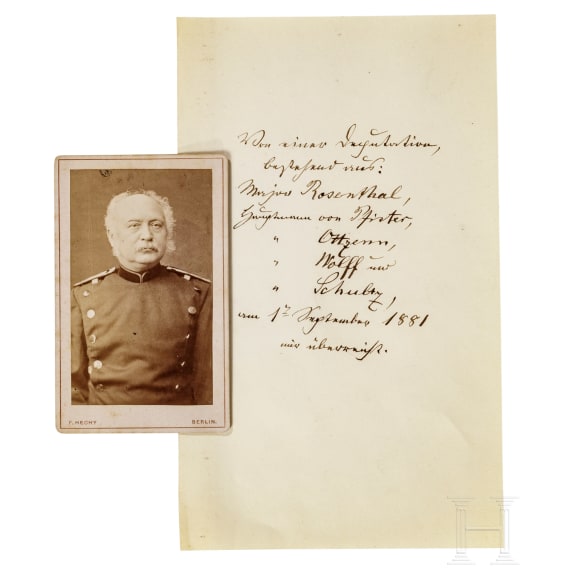 Von einer Deputation,
bestehend aus:
Major Rosenthal,
Hauptmann von Pfister,
" Ottzenn,
" Wolff und
" Schultz,
am 1t September 1881
mir überreicht.
F. HECHY BERLIN.
H